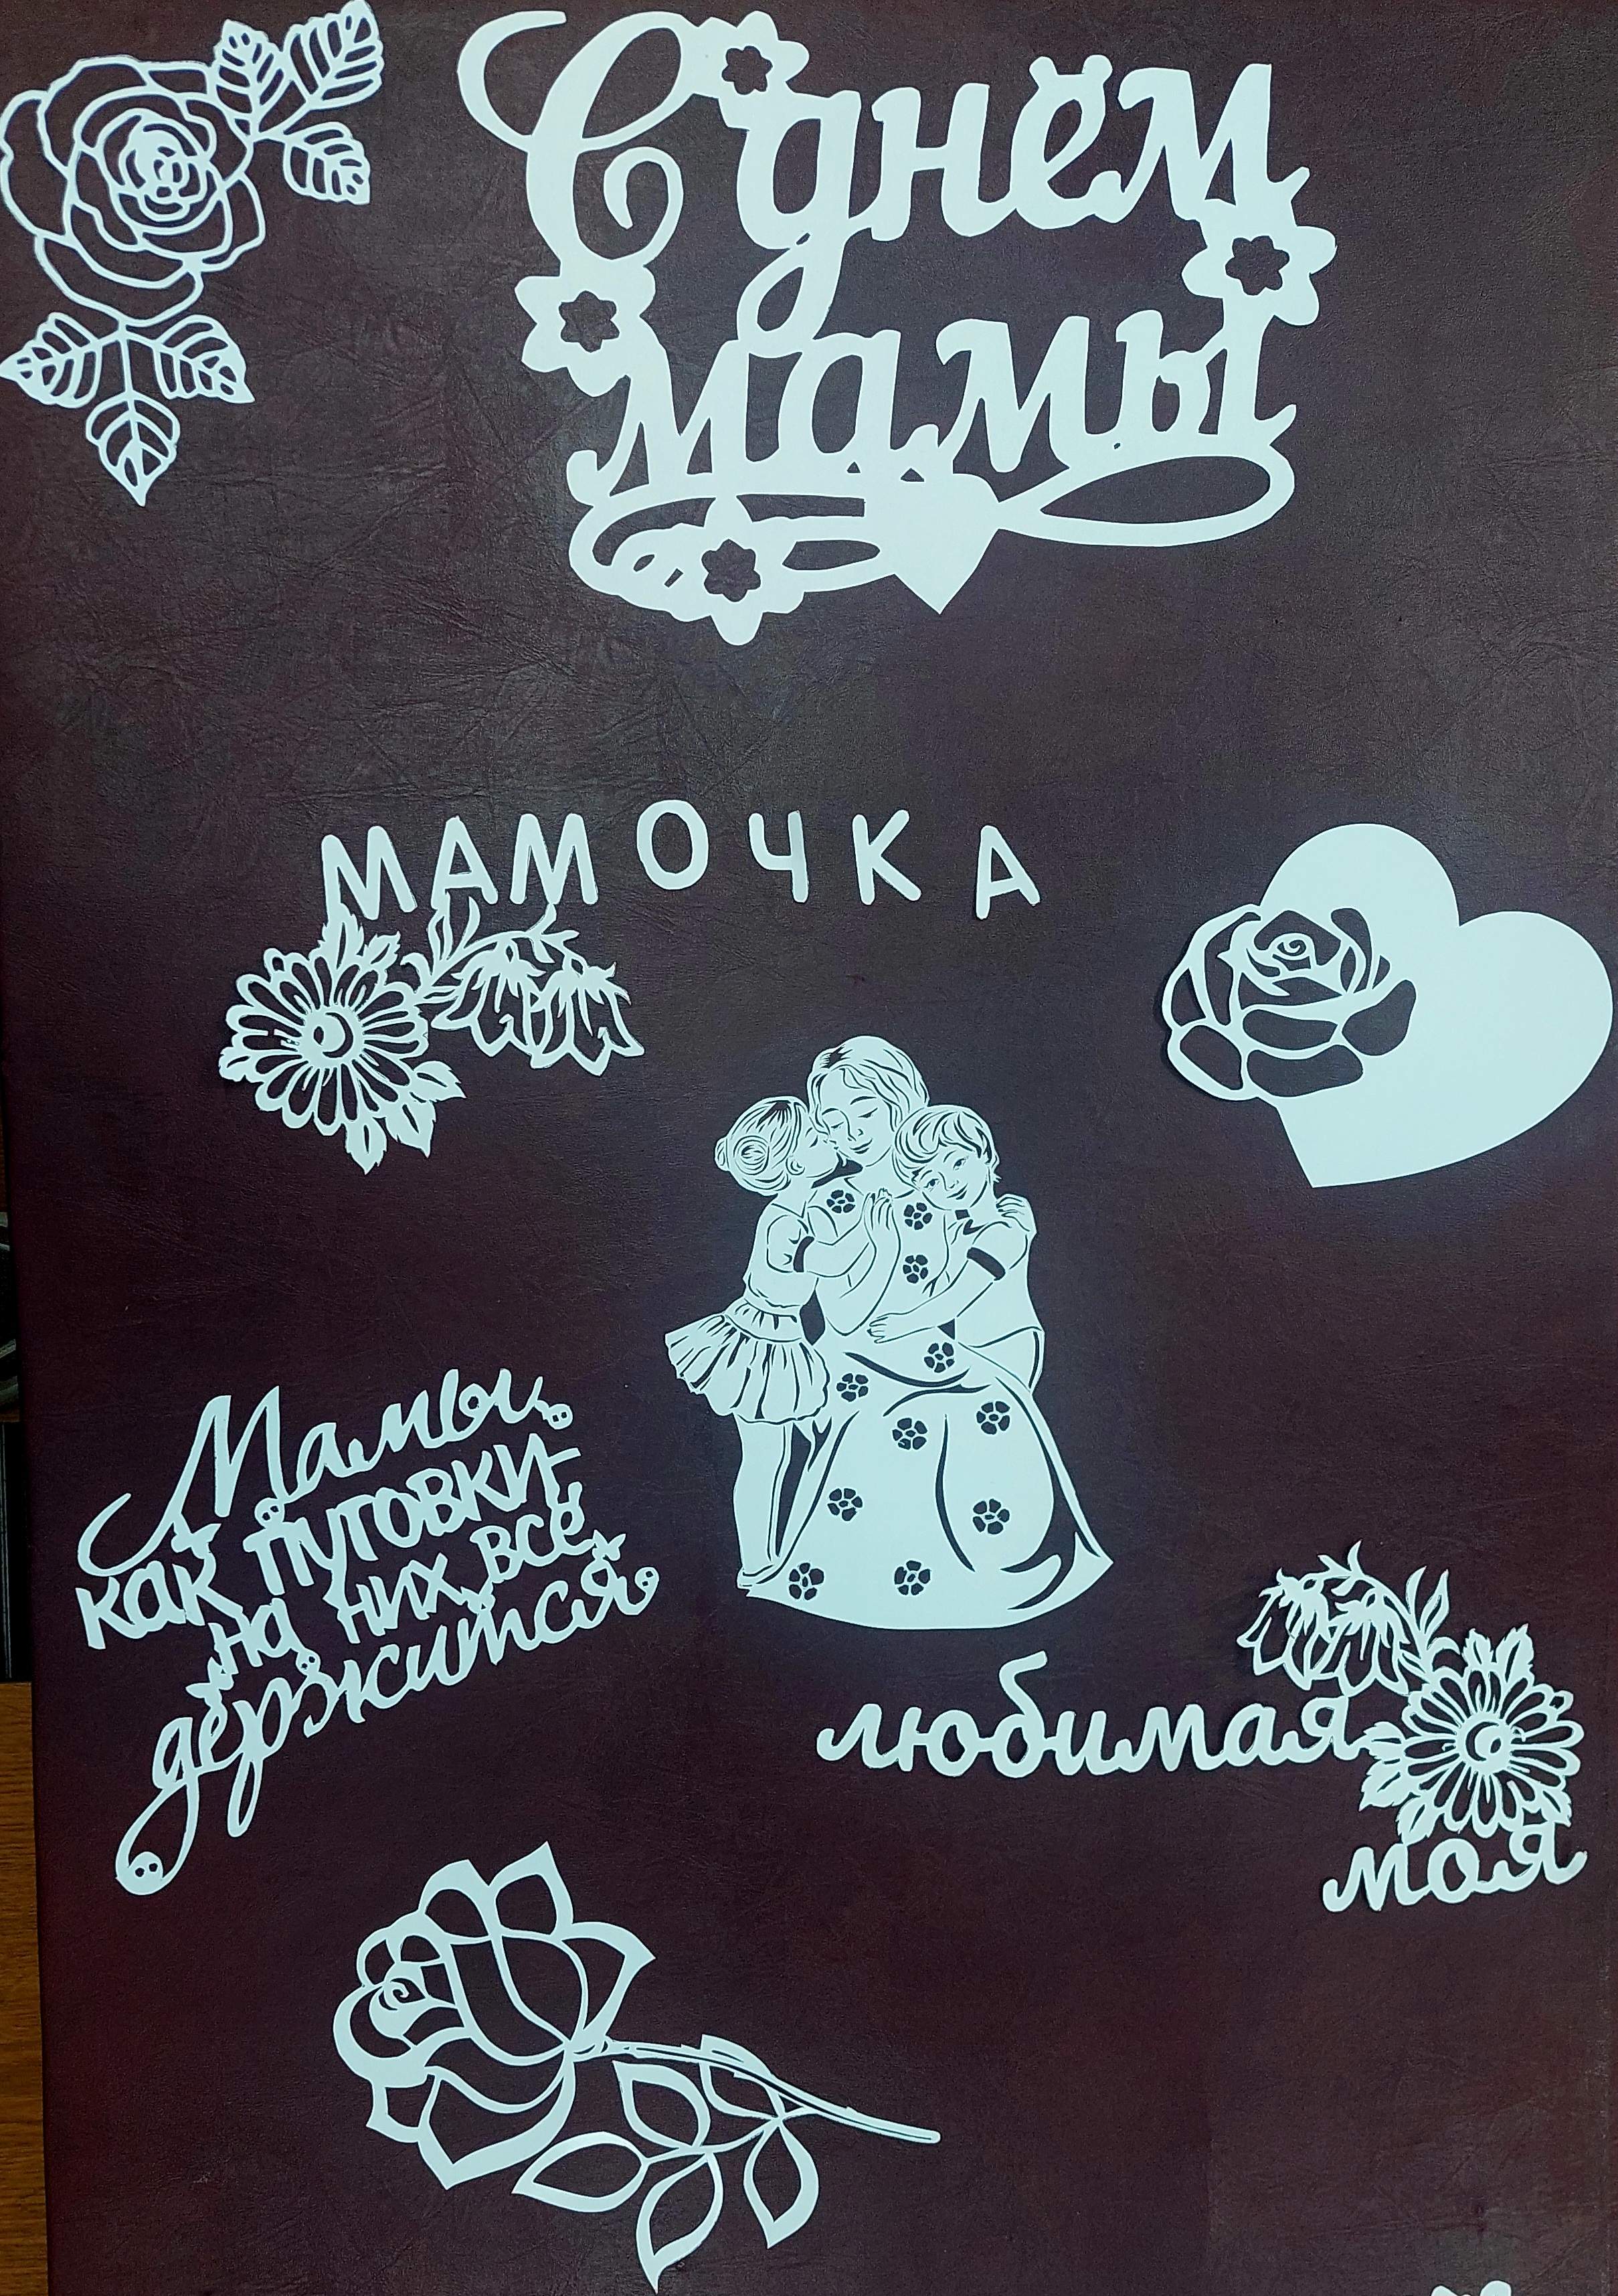 С днём
мамы
МАМОЧКА
Мамы,
как пуговки-
на них всё
держится
любимая
моя